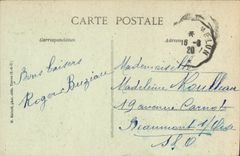 CARTE POSTALE
Correspondance
Adresse
MELUN
16-8
20
Bons baisers
Roger
Mademoiselle
Madeleine
19 avenue Carnot
Beaumont s/Oise
S & O